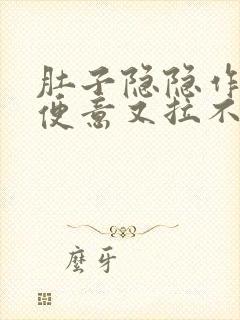 肚子隐隐作
便意又拉不
麼牙